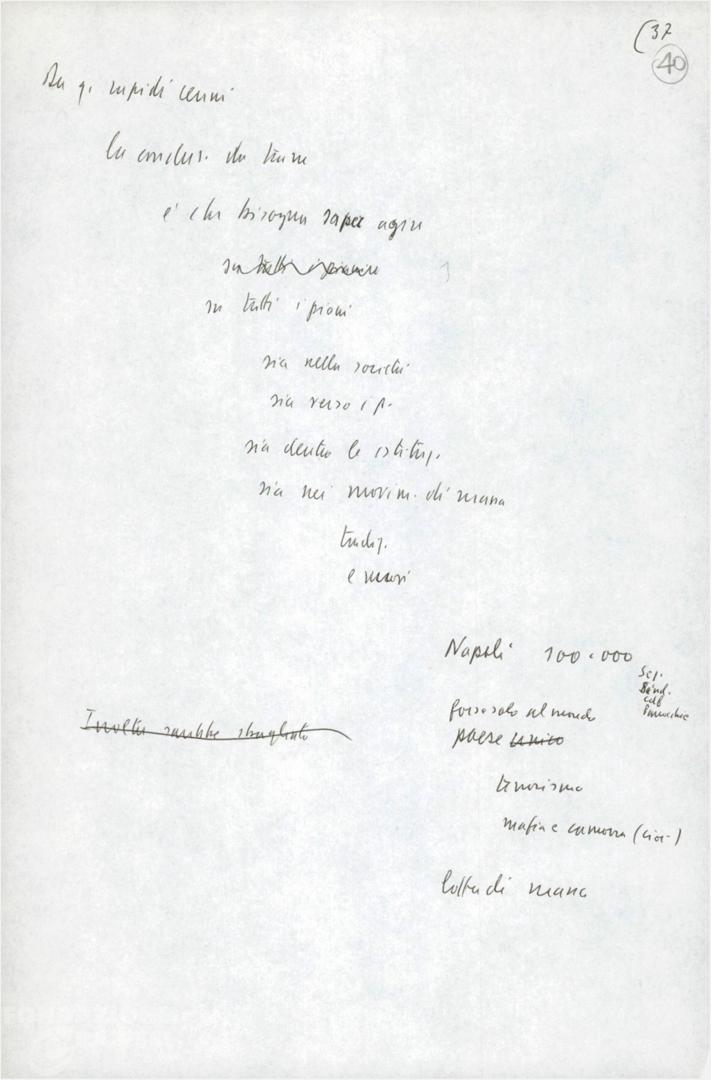 (37
40
Da q. rapidi cenni
la conclus. da trarre
è che bisogna saper agire
su tutti i piani
sia nella società
sia verso i p.
sia dentro le istituz.
sia nei movim. di massa
tradiz.
e nuovi
Napoli 100.000
Sez.
Sind.
cdf
Parrocchie
Inoltre sarebbe sbagliato
forse solo al mondo
paese unico
terrorismo
mafia e camorra
lotta di massa